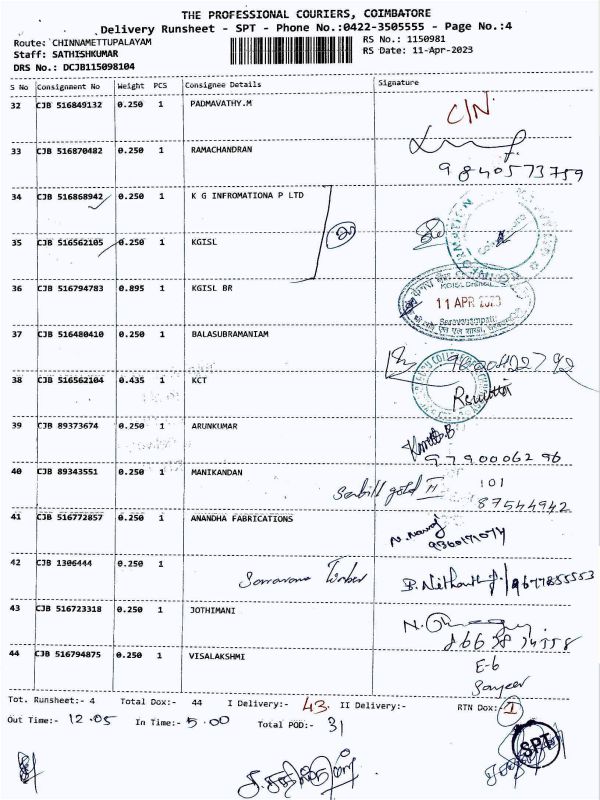 THE PROFESSIONAL COURIERS, COIMBATORE
Delivery Runsheet - SPT - Phone No.:0422-3505555 - Page No.:4
Route: CHINNAMETTUPALAYAM RS No.: 1150981
Staff: SATHISHKUMAR RS Date: 11-Apr-2023
DRS No.: DCJB115098104
S No Consignment No Weight PCS Consignee Details Signature
32 CJB 516849132 0.250 1 PADMAVATHY.M C/N
33 CJB 516870482 0.250 1 RAMACHANDRAN
9840573759
34 CJB 516868942 0.250 1 K G INFROMATIONA P LTD
35 CJB 516562105 0.250 1 KGISL
36 CJB 516794783 0.895 1 KGISL BR
11 APR 2023
37 CJB 516480410 0.250 1 BALASUBRAMANIAM
38 CJB 516562104 0.435 1 KCT
39 CJB 89373674 0.250 1 ARUNKUMAR
9790006296
40 CJB 89343551 0.250 1 MANIKANDAN
gold II 101
87544942
41 CJB 516772857 0.250 1 ANANDHA FABRICATIONS
42 CJB 1306444 0.250 1
43 CJB 516723318 0.250 1 JOTHIMANI
44 CJB 516794875 0.250 1 VISALAKSHMI E-6
Tot. Runsheet:- 4 Total Dox:- 44 I Delivery:- 43 II Delivery:- RTN Dox:- 1
Out Time:- 12.05 In Time:- 5.00 Total POD:- 31
SPT